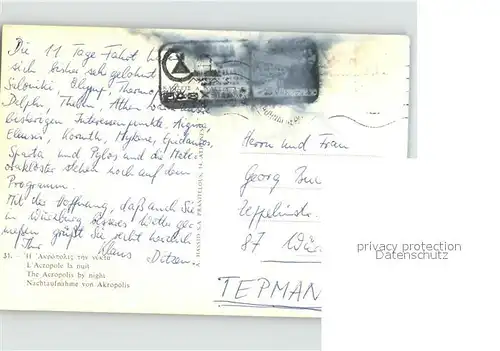 Die 11 Tage Fahrt
sich bisher sehr gelohnt
Saloniki, Olymp, Thermo
Delphi, Theben, Athen
bisherigen Interessenpunkte. Aegina,
Eleusis, Korinth, Mykene, Epidauros,
Sparta und Pylos und die Mete-
oraklöster stehen noch auf dem
Programm.
Mit der Hoffnung, daß auch Sie
in Würzburg Wetter ge-
nießen grüßt Sie recht herzlich
Ihr Klaus
31. - Ἡ Ἀκρόπολις τὴν νύκτα
L'Acropole la nuit
The Acropolis by night
Nachtaufnahme von Akropolis
Herrn und Frau
Georg
Zeppelinstr.
87
TEPMAN
privacy protection
Datenschutz